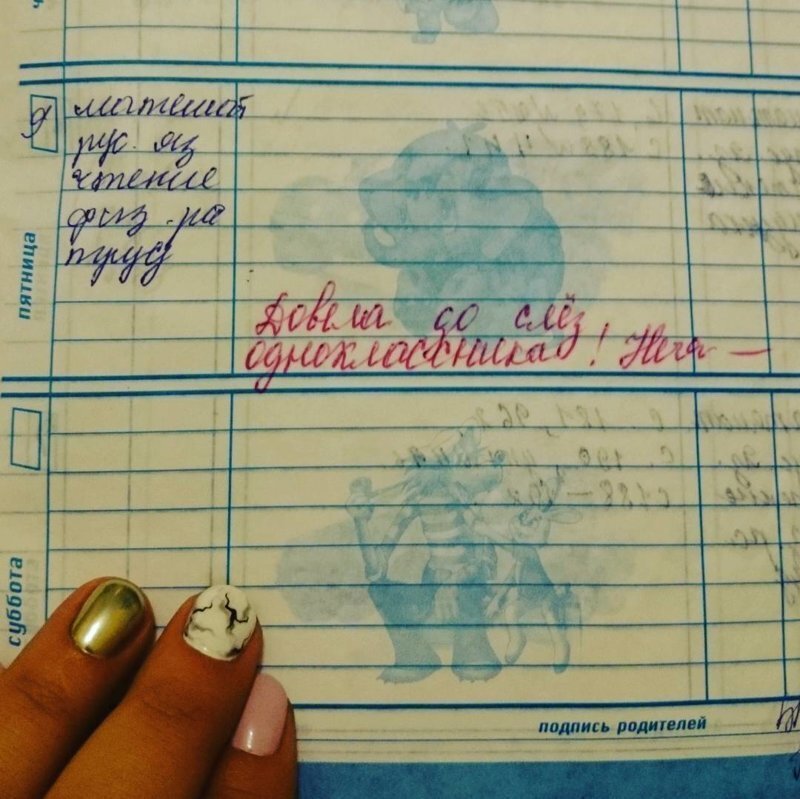 9
математ
рус. яз
чтение
физ.-ра
труд
пятница
Довела до слёз
одноклассника!
суббота
подпись родителей